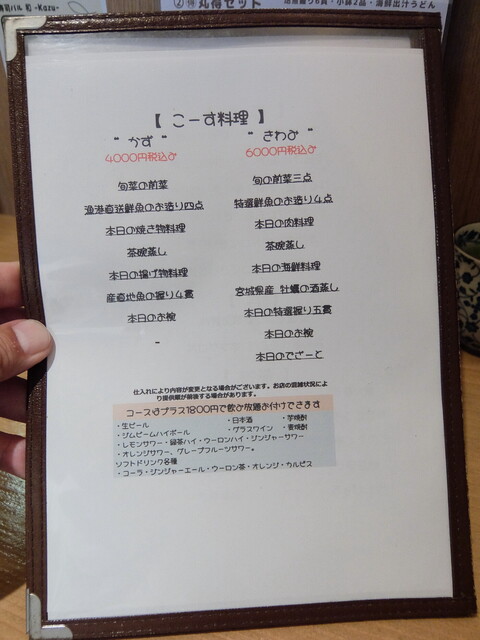 寿司バル 和 -Kazu-
丸得セット
【 こーす料理 】
" かず "
4000円税込み
旬菜の前菜
漁港直送鮮魚のお造り四点
本日の焼き物料理
茶碗蒸し
本日の揚げ物料理
産直地魚の握り4貫
本日のお椀
-
" きわみ "
6000円税込み
旬の前菜三点
特選鮮魚のお造り4点
本日の肉料理
茶碗蒸し
本日の海鮮料理
宮城県産 牡蠣の酒蒸し
本日の特選握り五貫
本日のお椀
本日のでざーと
仕入れにより内容が変更となる場合がございます。お店の混雑状況によ
り提供順が前後する場合があります。
コースはプラス1800円で飲み放題お付けできます
・生ビール ・日本酒 ・芋焼酎
・ジムビームハイボール ・グラスワイン ・麦焼酎
・レモンサワー・緑茶ハイ・ウーロンハイ・ジンジャーサワー
・オレンジサワー、グレープフルーツサワー。
ソフトドリンク各種
・コーラ・ジンジャーエール・ウーロン茶・オレンジ・カルピス